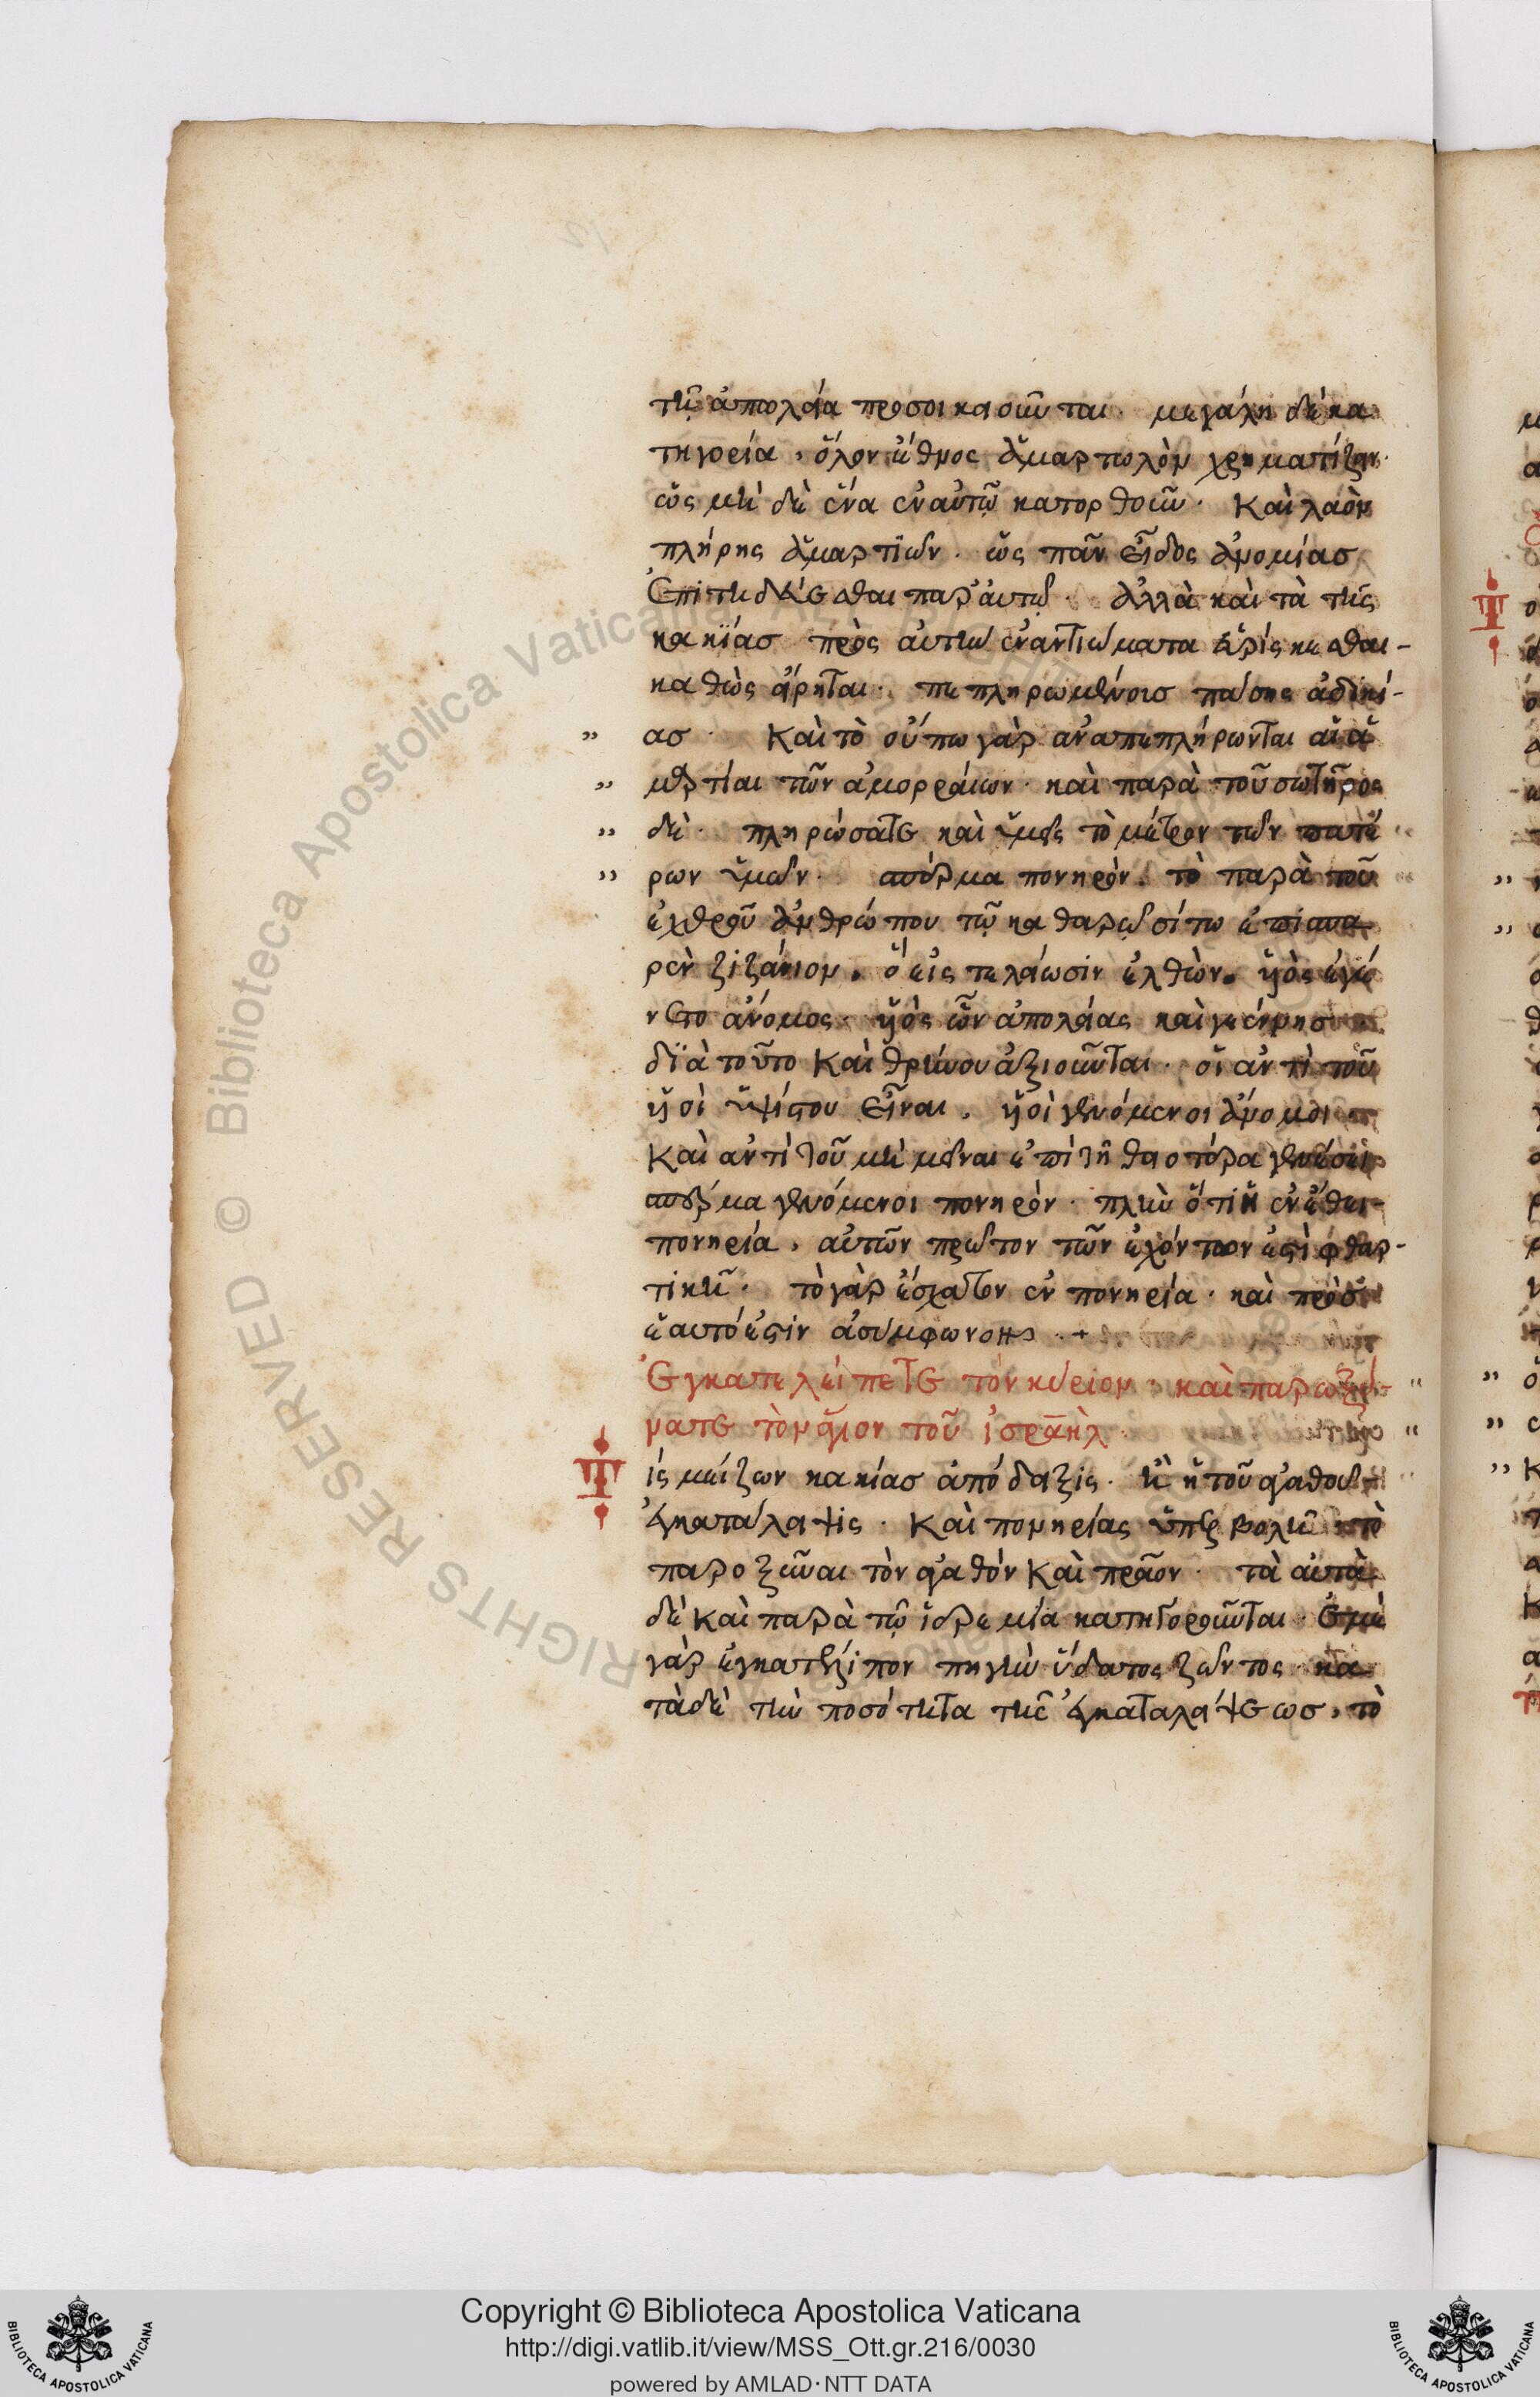 τῇ ἀπωλεία προσοικειοῦνται. μεγάλη δὲ κα
τηγορία, ὅλον ἔθνος ἁμαρτωλὸν χρηματίζειν.
ὡς μὴ δὲ ἕνα ἐν αὐτῷ κατορθοῦν. Καὶ λαὸν
πλήρης ἁμαρτιῶν. ὡς πᾶν εἶδος ἀνομίας
ἐπιτηδεύεσθαι παρ' αὐτῷ. ἀλλὰ καὶ τὰ τῆς
κακίας πρὸς αὐτὴν ἐναντιώματα εὑρίσκεσθαι-
καθὼς εἴρηται. πεπληρωμένοις πάσης ἀδικί-
ας. Καὶ τὸ οὔπω γὰρ ἀναπεπλήρωνται αἱ ἁ
μαρτίαι τῶν ἀμορραίων. καὶ παρὰ τοῦ σωτῆρος
δὲ. πληρώσατε καὶ ὑμεῖς τὸ μέτρον τῶν πατέ
ρων ὑμῶν. σπέρμα πονηρόν. τὸ παρὰ τοῦ
ἐχθροῦ ἀνθρώπου τῷ καθαρῷ σίτω ἐπισπα
ρὲν ζιζάνιον. ὃ εἰς τελείωσιν ἐλθὼν. υἱὸς ἐγέ
νετο ἀνόμος. υἱὸς ὢν ἀπωλείας καὶ γεέννης
διὰ τοῦτο Καὶ θρήνου ἀξιοῦνται. οἱ ἀντὶ τοῦ
υἱοὶ ὑψίστου εἶναι. υἱοὶ γενόμενοι ἄνομοι
Καὶ ἀντὶ τοῦ μὴ μεῖναι ἐπὶ τῇ
σπέρμα γενόμενοι πονηρὸν. πλὴν ὅτι ἡ ἐν ἔθει-
πονηρία, αὐτῶν πρῶτον τῶν ἐχόντων ἐστὶ φθαρ-
τικὴ. τὸ γὰρ ἔσχατον ἐν πονηρία. καὶ πρὸς
ἑαυτό ἐστιν ἀσύμφωνον .+
Ἐγκατελείπετε τὸν κύριον. καὶ παρωξύ-
νατε τὸν ἅγιον τοῦ ἰσραὴλ.
Τίς μείζων κακίας ἀπόδειξις. ἢ ἡ τοῦ ἀγαθοῦ
ἐγκατάλειψις. Καὶ πονηρίας ὑπερβολὴ τὸ
παροξῦναι τὸν ἀγαθόν Καὶ πρᾶον. τὰ αὐτὰ
δὲ Καὶ παρὰ τῷ ἱερεμία κατηγοροῦνται. ἐμὲ
γὰρ ἐγκατέλιπον πηγὴν ὕδατος ζῶντος. κα
τὰ δὲ τὴν ποσότητα τῆς ἐγκαταλείψεως, τὸ
Copyright © Biblioteca Apostolica Vaticana
http://digi.vatlib.it/view/MSS_Ott.gr.216/0030
powered by AMLAD·NTT DATA